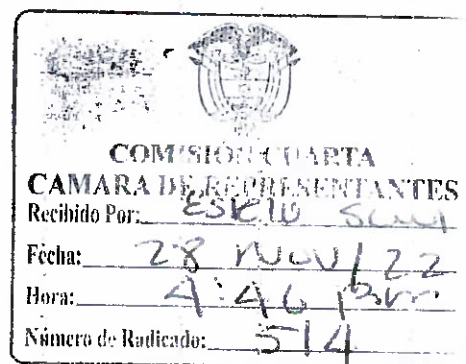 COMISIÓN CUARTA
CAMARA DE REPRESENTANTES
Recibido Por:
Fecha: 28 NOV/22
Hora: 4:46 pm
Número de Radicado: 514